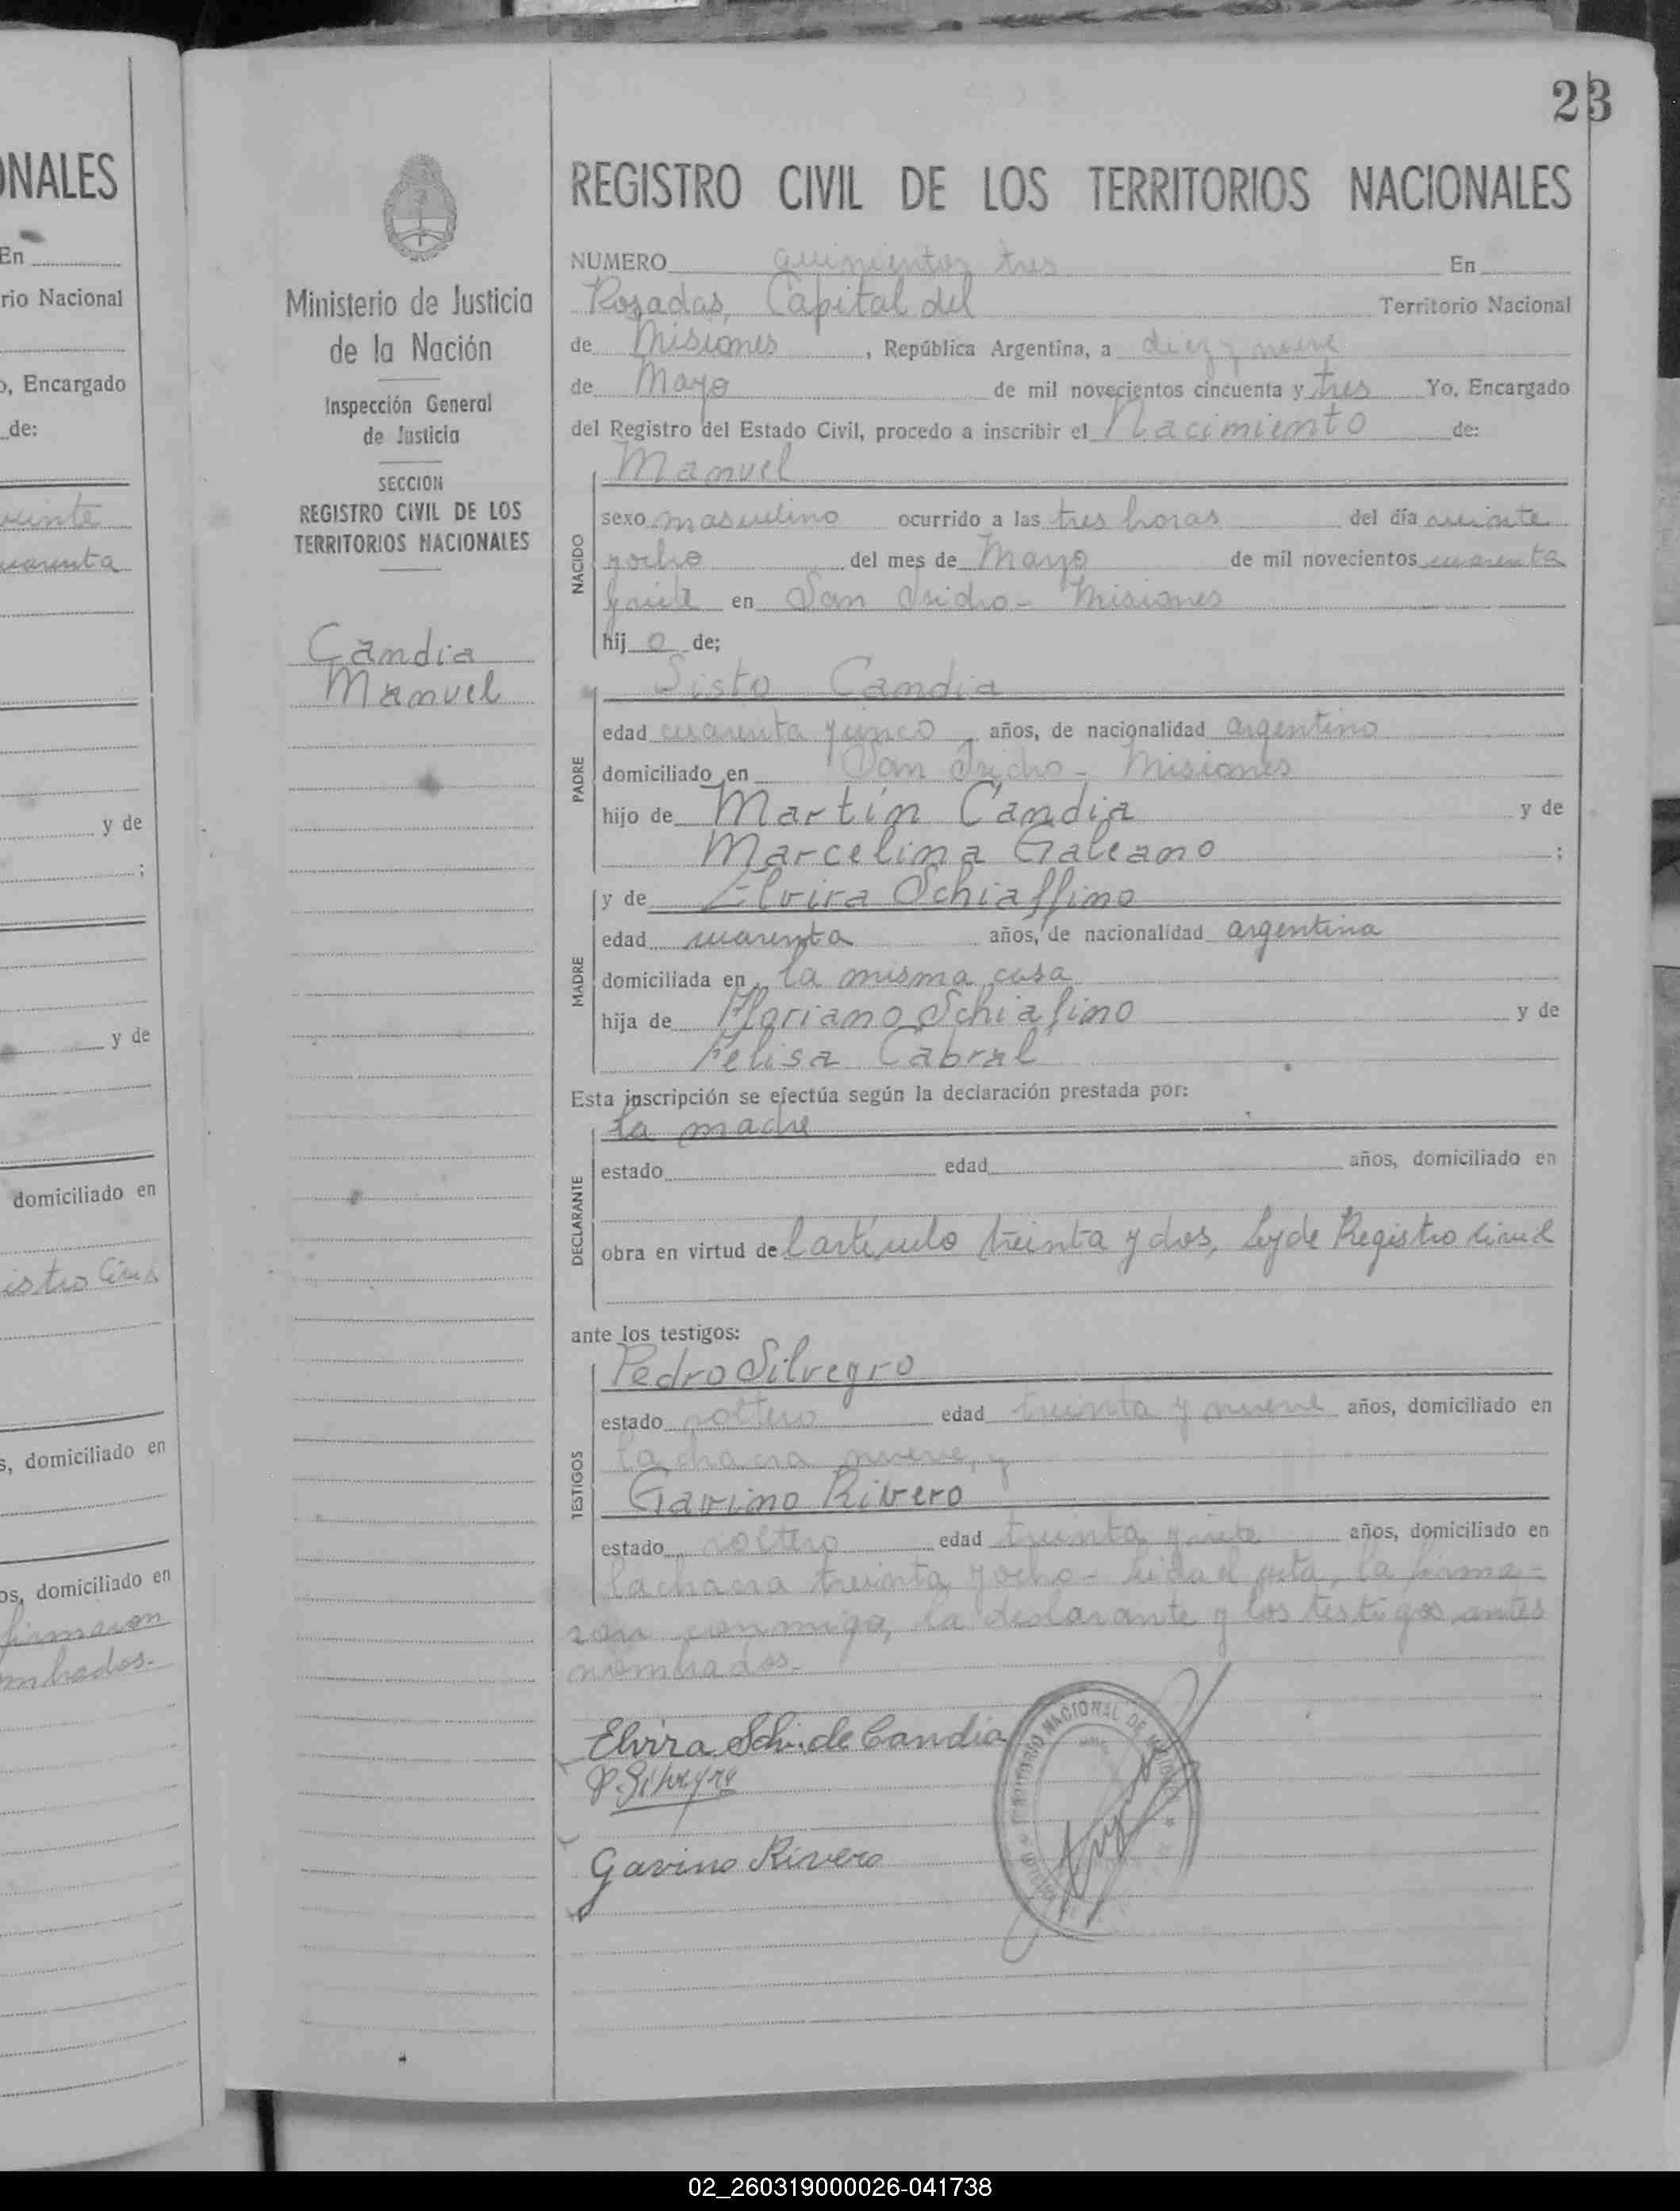 23
ONALES
En
rio Nacional
o, Encargado
de:
veinte
cuarenta
y de
;
y de
domiciliado en
istro Civil
s, domiciliado en
os, domiciliado en
firmaron
mbrados.-
Ministerio de Justicia
de la Nación
Inspección General
de Justicia
SECCION
REGISTRO CIVIL DE LOS
TERRITORIOS NACIONALES
Candia
Manuel
REGISTRO CIVIL DE LOS TERRITORIOS NACIONALES
NUMERO quinientos tres En
Posadas, Capital del Territorio Nacional
de Misiones, República Argentina, a diez y nueve
de Mayo de mil novecientos cincuenta y tres Yo, Encargado
del Registro del Estado Civil, procedo a inscribir el Nacimiento de:
Manuel
NACIDO
sexo masculino ocurrido a las tres horas del día veinte
yocho del mes de Mayo de mil novecientos cuarenta
ysiete en San Isidro - Misiones
hij o de;
Sisto Candia
PADRE
edad cuarenta ycinco años, de nacionalidad argentino
domiciliado en San Isidro - Misiones
hijo de Martín Candia y de
Marcelina Galeano ;
y de Elvira Schiaffino
MADRE
edad cuarenta años, de nacionalidad argentina
domiciliada en la misma casa
hija de Floriano Schiafino y de
Felisa Cabral
Esta inscripción se efectúa según la declaración prestada por:
la madre
DECLARANTE
estado edad años, domiciliado en
obra en virtud del artículo treinta y dos, Ley de Registro Civil
ante los testigos:
Pedro Silvegro
TESTIGOS
estado soltero edad treinta y nueve años, domiciliado en
la chacra nueve, y
Gavino Rivero
estado soltero edad treinta ysiete años, domiciliado en
la chacra treinta yocho - Leida el acta, la firma-
ron conmigo, la declarante y los testigos antes
nombrados.-
Elvira Sch. de Candia
P. Silveyra
Gavino Rivero
TERRITORIO NACIONAL DE MISIONES
02_260319000026-041738